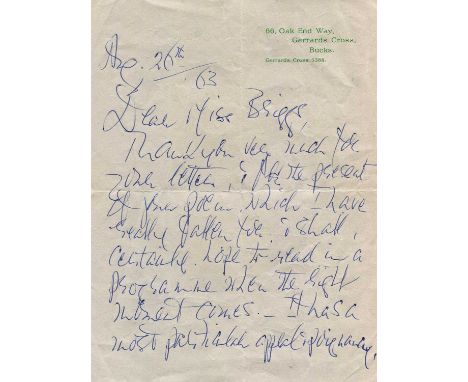 66, Oak End Way,
Gerrards Cross,
Bucks.
Gerrards Cross
Aug. 26th
63
Dear Miss Briggs,
Thank you very much for
your letter, & for the present
of your poem which I have
really fallen for. I shall,
certainly hope to read in a
programme when the right
moment comes. — It has a
most particular appeal